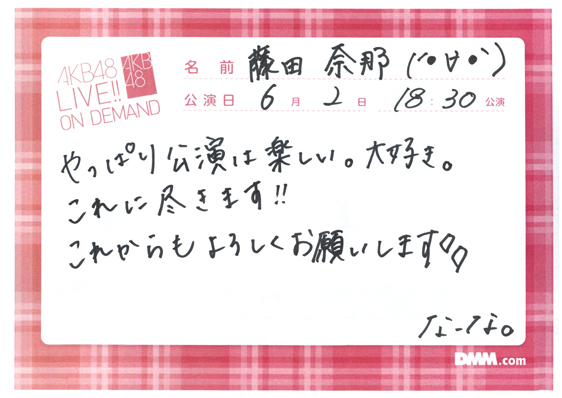 AKB48
LIVE!!
ON DEMAND
AKB
48
名前 藤田 奈那 (´•∀•`)
公演日 6月2日 18:30公演
やっぱり公演は楽しい。大好き。
これに尽きます!!
これからもよろしくお願いします♡♡
なーな。
DMM.com